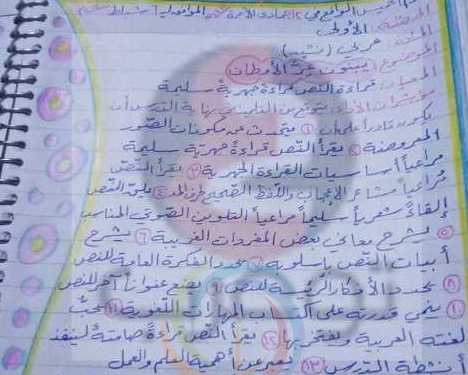 الحصة: الأولى
المادة: عربي (نشيد)
الموضوع: يبنون عز الأوطان
المعيار: قراءة النص قراءة جهرية سليمة
مؤشرات الأداء: يتوقع من التلميذ في نهاية الدرس أن
يكون قادراً على أن: ① يتحدث عن مكونات الصور
المعروضة ② يقرأ النص قراءة جهرية سليمة
مراعياً أساسيات القراءة الجهرية ③ يقرأ النص
مراعياً مشاعر الإعجاب واللفظ الصحيح ④ يلقي النص
إلقاءً شعرياً سليماً مراعياً التلوين الصوتي المناسب
⑤ يشرح معاني بعض المفردات الغريبة ⑥ يشرح
أبيات النص بأسلوبه ⑦ يحدد الفكرة العامة للنص
⑧ يحدد الأفكار الرئيسة للنص ⑨ يضع عنواناً آخر للنص
⑩ ينمي قدرته على اكتساب المهارات اللغوية ⑪ يحب
لغته العربية ويفتخر بها ⑫ يقرأ النص قراءة صامتة لينفذ
أنشطة الدرس ⑬ يعبر عن أهمية العلم والعمل